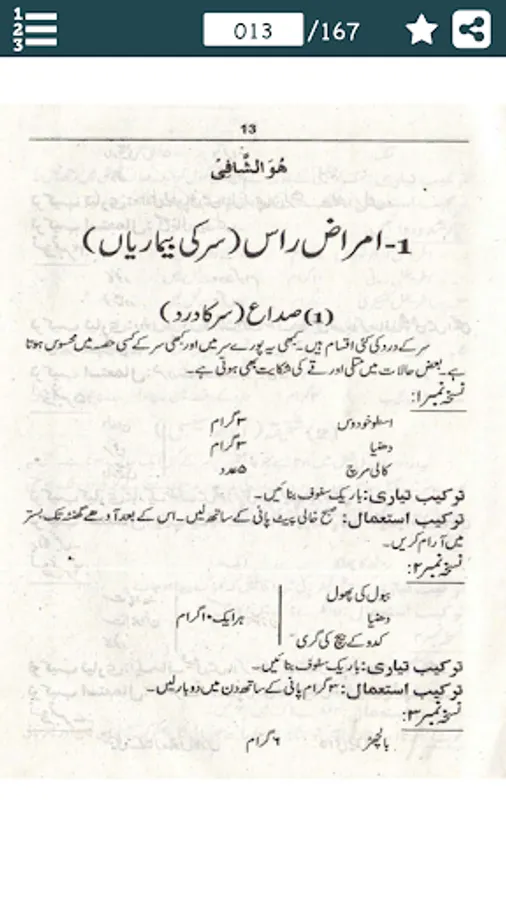 1
2
3
013 /167
13
هُوَ الشَّافِیْ
1- امراض راس (سر کی بیماریاں)
(1) صداع (سر کا درد)
سر کے درد کی کئی اقسام ہیں۔ کبھی یہ پورے سر میں اور کبھی سر کے کسی حصہ میں محسوس ہوتا
ہے۔ بعض حالات میں متلی اور قے کی شکایت بھی ہوتی ہے۔
نسخہ نمبر ۱:
اسطوخودوس ۳ گرام
دھنیا ۳ گرام
کالی مرچ ۵ عدد
ترکیب تیاری: باریک سفوف بنائیں۔
ترکیب استعمال: صبح خالی پیٹ پانی کے ساتھ لیں۔ اس کے بعد آدھے گھنٹہ تک بستر
میں آرام کریں۔
نسخہ نمبر ۲:
ببول کی پھول
دھنیا ہر ایک ۱۰ گرام
کدو کے بیج کی گری
ترکیب تیاری: باریک سفوف بنائیں۔
ترکیب استعمال: ۳ گرام پانی کے ساتھ دن میں دو بار لیں۔
نسخہ نمبر ۳:
بالچھڑ ۶ گرام